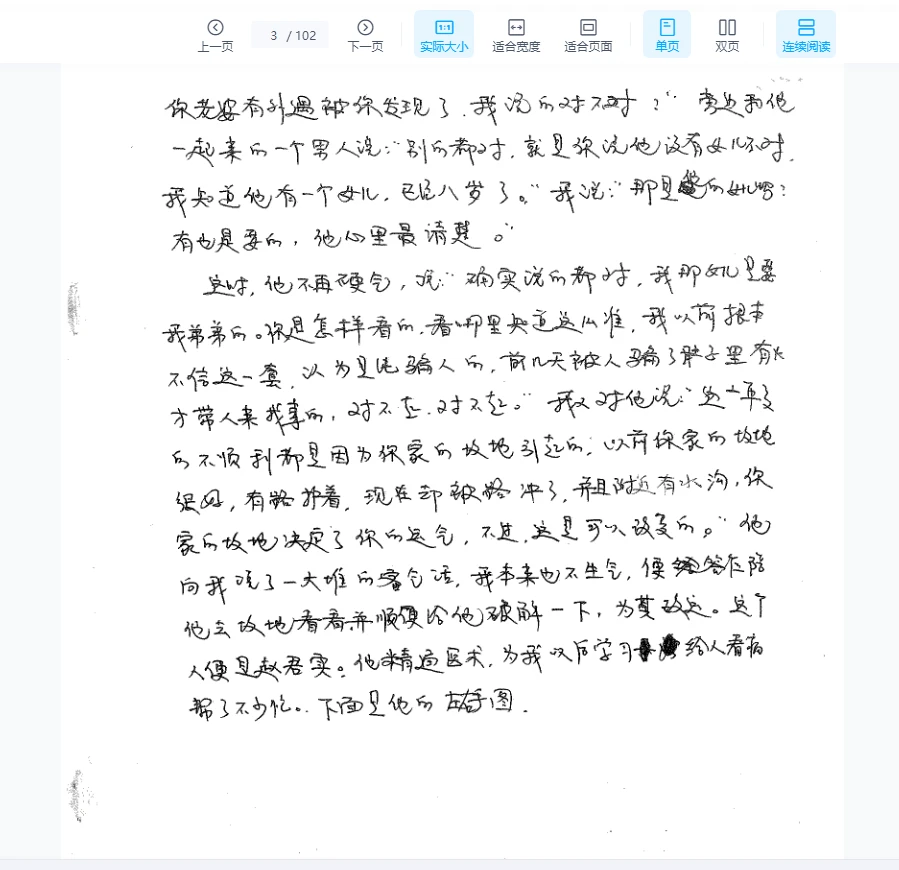 上一页 3 / 102 下一页 实际大小 适合宽度 适合页面 单页 双页 连续阅读
你老婆有外遇被你发现了，我说的对不对？”旁边和他
一起来的一个男人说：“别的都对，就是你说他没有女儿不对，
我知道他有一个女儿，已经八岁了。”我说：“那是他的女儿吗？
有也是要的，他心里最清楚。”
这时，他不再硬气，说：“确实说的都对，我那女儿是要
我弟弟的。你是怎样看的，看哪里知道这么准，我以前根本
不信这一套，认为是骗人的，前几天被人骗了脖子里有火
才带人来找事的，对不起，对不起。”我又对他说：“这一年多
的不顺利都是因为你家的坟地引起的；以前你家的坟地
很好，有路护着，现在却被路冲了，并且附近有水沟，你
家的坟地决定了你的运气，不过，这是可以改变的。”他
向我说了一大堆的客气话，我本来也不生气，便答应陪
他去坟地看看并顺便给他破解一下，为其改运。这个
人便是赵君实。他精通医术，为我以后学习给人看病
帮了不少忙。下面是他的左手图．